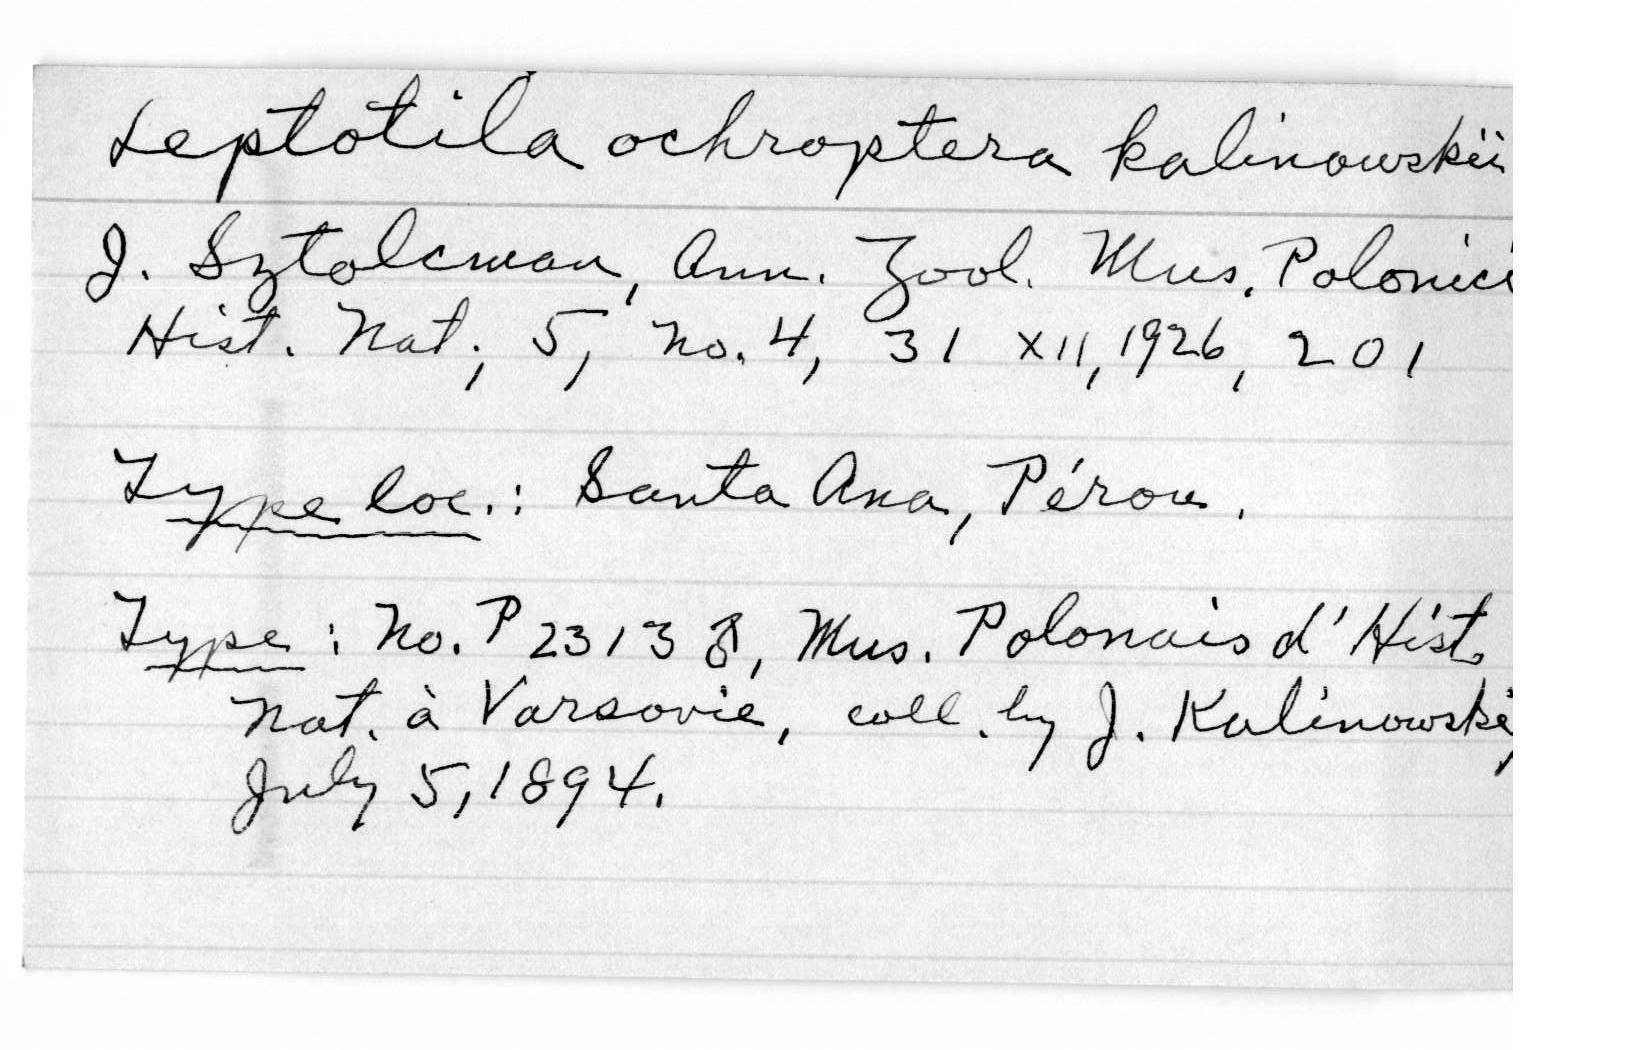 Leptotila ochroptera kalinowskii
J. Sztolcman, Ann. Zool. Mus. Polonici
Hist. Nat., 5, no. 4, 31 XII, 1926, 201
Type loc.: Santa Ana, Pérou.
Type: No. P 2313 ♂, Mus. Polonais d'Hist.
Nat. à Varsovie, coll. by J. Kalinowski,
July 5, 1894.